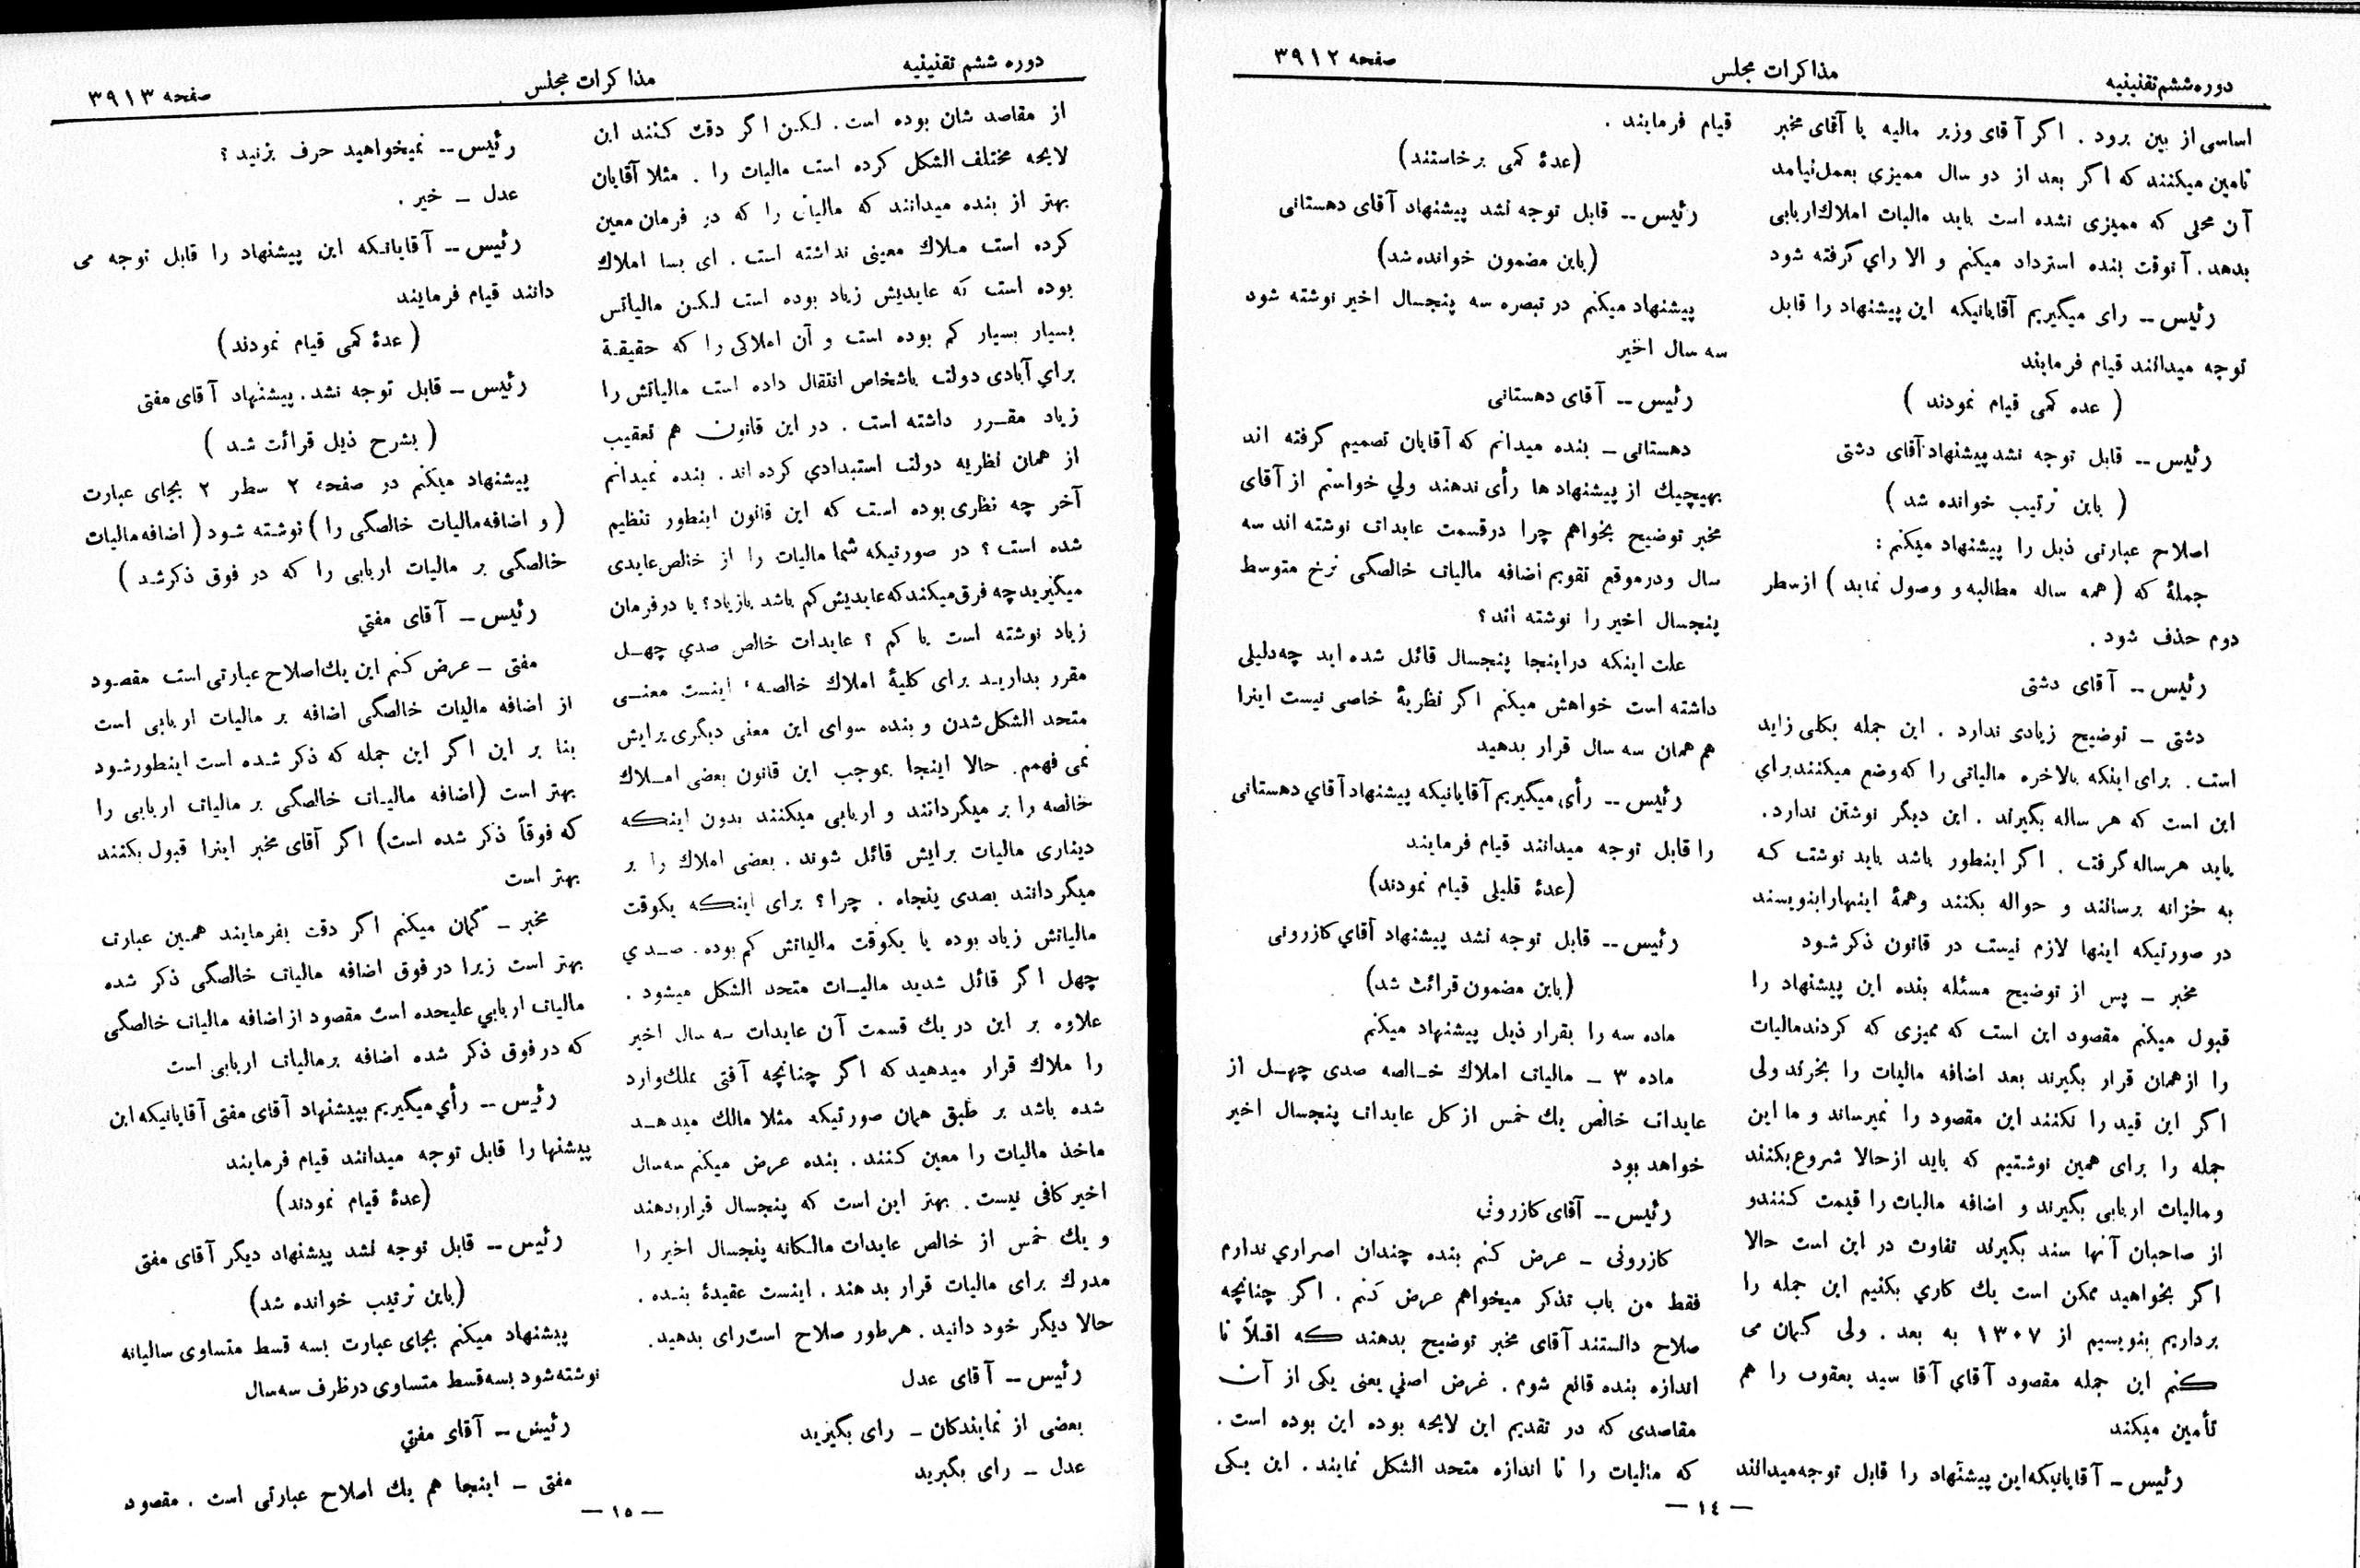 دوره ششم تقنینیه
مذاکرات مجلس
صفحه ۳۹۱۲
اساسی از بین برود . اگر آقای وزیر مالیه یا آقای مخبر
تامین میکنند که اگر بعد از دو سال ممیزی بعمل نیامد
آن محلی که ممیزی نشده است باید مالیات املاك اربابی
بدهد . آنوقت بنده استرداد میکنم و الا راي گرفته شود
رئیس -- رای میگیریم آقایانیکه این پیشنهاد را قابل
توجه میدانند قیام فرمایند
( عده کمی قیام نمودند )
رئیس -- قابل توجه نشد پیشنهاد آقای دشتی
( باین ترتیب خوانده شد )
اصلاح عبارتی ذیل را پیشنهاد میکنم :
جملۀ که ( همه ساله مطالبه و وصول نماید ) از سطر
دوم حذف شود .
رئیس -- آقای دشتی
دشتی - توضیح زیادی ندارد . این جمله بکلی زاید
است . برای اینکه بالاخره مالیاتی را که وضع میکنند براي
این است که هر ساله بگیرند . این دیگر نوشتن ندارد .
باید هرساله گرفت . اگر اینطور باشد باید نوشت که
به خزانه برسانند و حواله بکنند و همۀ اینهارا بنویسند
در صورتیکه اینها لازم نیست در قانون ذکر شود
مخبر - پس از توضیح مسئله بنده این پیشنهاد را
قبول میکنم مقصود این است که ممیزی که کردند مالیات
را از همان قرار بگیرند بعد اضافه مالیات را بخرند ولی
اگر این قید را نکنند این مقصود را نمیرساند و ما این
جمله را برای همین نوشتیم که باید از حالا شروع بکنند
و مالیات اربابی بگیرند و اضافه مالیات را قیمت کنند و
از صاحبان آنها سند بگیرند تفاوت در این است حالا
اگر بخواهید ممکن است یك کاري بکنیم این جمله را
برداریم بنویسیم از ۱۳۰۷ به بعد . ولی گمان می
کنم این جمله مقصود آقاي آقا سید یعقوب را هم
تأمین میکند
رئیس - آقایانیکه این پیشنهاد را قابل توجه میدانند
قیام فرمایند .
(عدۀ کمی برخاستند)
رئیس -- قابل توجه نشد پیشنهاد آقای دهستانی
(باین مضمون خوانده شد)
پیشنهاد میکنم در تبصره سه پنجسال اخیر نوشته شود
سه سال اخیر
رئیس -- آقای دهستانی
دهستانی - بنده میدانم که آقایان تصمیم گرفته اند
بهیچیك از پیشنهاد ها رأی ندهند ولي خواستم از آقای
مخبر توضیح بخواهم چرا درقسمت عایدات نوشته اند سه
سال ودرموقع تقویم اضافه مالیات خالصگی نرخ متوسط
پنجسال اخیر را نوشته اند ؟
علت اینکه دراینجا پنجسال قائل شده اید چه دلیلی
داشته است خواهش میکنم اگر نظریۀ خاصی نیست اینرا
هم همان سه سال قرار بدهید
رئیس -- رأی میگیریم آقایانیکه پیشنهاد آقاي دهستانی
را قابل توجه میدانند قیام فرمایند
(عدۀ قلیلی قیام نمودند)
رئیس -- قابل توجه نشد پیشنهاد آقاي کازرونی
(باین مضمون قرائت شد)
ماده سه را بقرار ذیل پیشنهاد میکنم
ماده ۳ - مالیات املاك خـالصه صدی چهـل از
عایدات خالص یك خمس از کل عایدات پنجسال اخیر
خواهد بود
رئیس -- آقای کازرونی
کازرونی - عرض کنم بنده چندان اصراري ندارم
فقط من باب تذکر میخواهم عرض کنم . اگر چنانچه
صلاح دانستند آقای مخبر توضیح بدهند که اقلاً تا
اندازه بنده قانع شوم . غرض اصلي یعنی یکی از آن
مقاصدی که در تقدیم این لایحه بوده این بوده است .
که مالیات را تا اندازه متحد الشکل نمایند . این یکی
— ١٤ —
دوره ششم تقنینیه
مذاکرات مجلس
صفحه ۳۹۱۳
از مقاصد شان بوده است . لکن اگر دقت کنند این
لایحه مختلف الشکل کرده است مالیات را . مثلا آقایان
بهتر از بنده میدانند که مالیات را که در فرمان معین
کرده است مـلاك معینی نداشته است . ای بسا املاك
بوده است که عایدیش زیاد بوده است لکـن مالیاتش
بسیار بسیار کم بوده است و آن املاکی را که حقیقـة
براي آبادی دولت باشخاص انتقال داده است مالیاتش را
زیاد مقـرر داشته است . در این قانون هم تعقیب
از همان نظریه دولت استبدادي کرده اند . بنده نمیدانم
آخر چه نظری بوده است که این قانون اینطور تنظیم
شده است ؟ در صورتیکه شما مالیات را از خالص عایدی
میگیرید چه فرق میکند که عایدیش کم باشد یا زیاد ؟ یا در فرمان
زیاد نوشته است یا کم ؟ عایدات خالص صدي چهـل
مقرر بداریـد برای کلیۀ املاك خالصه ، اینست معنـی
متحد الشکل شدن و بنده سوای این معنی دیگری برایش
نمی فهمم . حالا اینجا بموجب این قانون بعضی امـلاك
خالصه را بر میگردانند و اربابی میکنند بدون اینکه
دیناری مالیات برایش قائل شوند . بعضی املاك را بر
میگردانند بصدی پنجاه . چرا ؟ برای اینکه یکوقت
مالیاتش زیاد بوده یا یکوقت مالیاتش کم بوده . صـدي
چهل اگر قائل شدید مالیـات متحد الشکل میشود .
علاوه بر این در یك قسمت آن عایدات سه سال اخیر
را ملاك قرار میدهید که اگر چنانچه آفتی بملك وارد
شده باشد بر طبق همان صورتیکه مثلا مالك میدهـد
ماخذ مالیات را معین کنند . بنده عرض میکنم سه سال
اخیر کافی نیست . بهتر این است که پنجسال قرار بدهند
و یك خمس از خالص عایدات مالـکانه پنجسال اخیر را
مدرك برای مالیات قرار بدهند . اینست عقیدۀ بنـده .
حالا دیگر خود دانید . هرطور صلاح است رای بدهید .
رئیس -- آقای عدل
بعضی از نمایندکان - رای بگیرید
عدل - رای بگیرید
رئیس -- نمیخواهید حرف بزنید ؟
عدل - خیر .
رئیس -- آقایانیکه این پیشنهاد را قابل توجه می
دانند قیام فرمایند
( عدۀ کمی قیام نمودند )
رئیس - قابل توجه نشد . پیشنهاد آقای مفتی
( بشرح ذیل قرائت شد )
پیشنهاد میکنم در صفحه ۲ سطر ۲ بجای عبارت
( و اضافه مالیات خالصگی را ) نوشته شود ( اضافه مالیات
خالصگی بر مالیات اربابی را که در فوق ذکر شد )
رئیس - آقای مفتي
مفتی - عرض کنم این یك اصلاح عبارتی است مقصـود
از اضافه مالیات خالصگی اضافه بر مالیات اربابی است
بنا بر این اگر این جمله که ذکر شده است اینطور شود
بهتر است (اضافه مالیـات خالصگی بر مالیات اربابی را
که فوقاً ذکر شده است) اگر آقای مخبر اینرا قبول بکنند
بهتر است
مخبر - گمان میکنم اگر دقت بفرمایند همـین عبارت
بهتر است زیرا در فوق اضافه مالیات خالصگی ذکر شده
مالیات اربابي علیحده است مقصود از اضافه مالیات خالصگی
که در فوق ذکر شده اضافه بر مالیات اربابی است
رئیس -- رأي میگیریم بپیشنهاد آقای مفتی آقایانیکه این
پیشنها را قابل توجه میدانند قیام فرمایند
(عدۀ قیام نمودند)
رئیس -- قابل توجه نشد پیشنهاد دیگر آقای مفتی
(باین ترتیب خوانده شد)
پیشنهاد میکنم بجای عبارت بسه قسط متساوی سالیانه
نوشته شود بسه قسط متساوی در ظرف سه سال
رئیس -- آقای مفتي
مفتی - اینجا هم یك اصلاح عبارتی است . مقصود
— ١٥ —